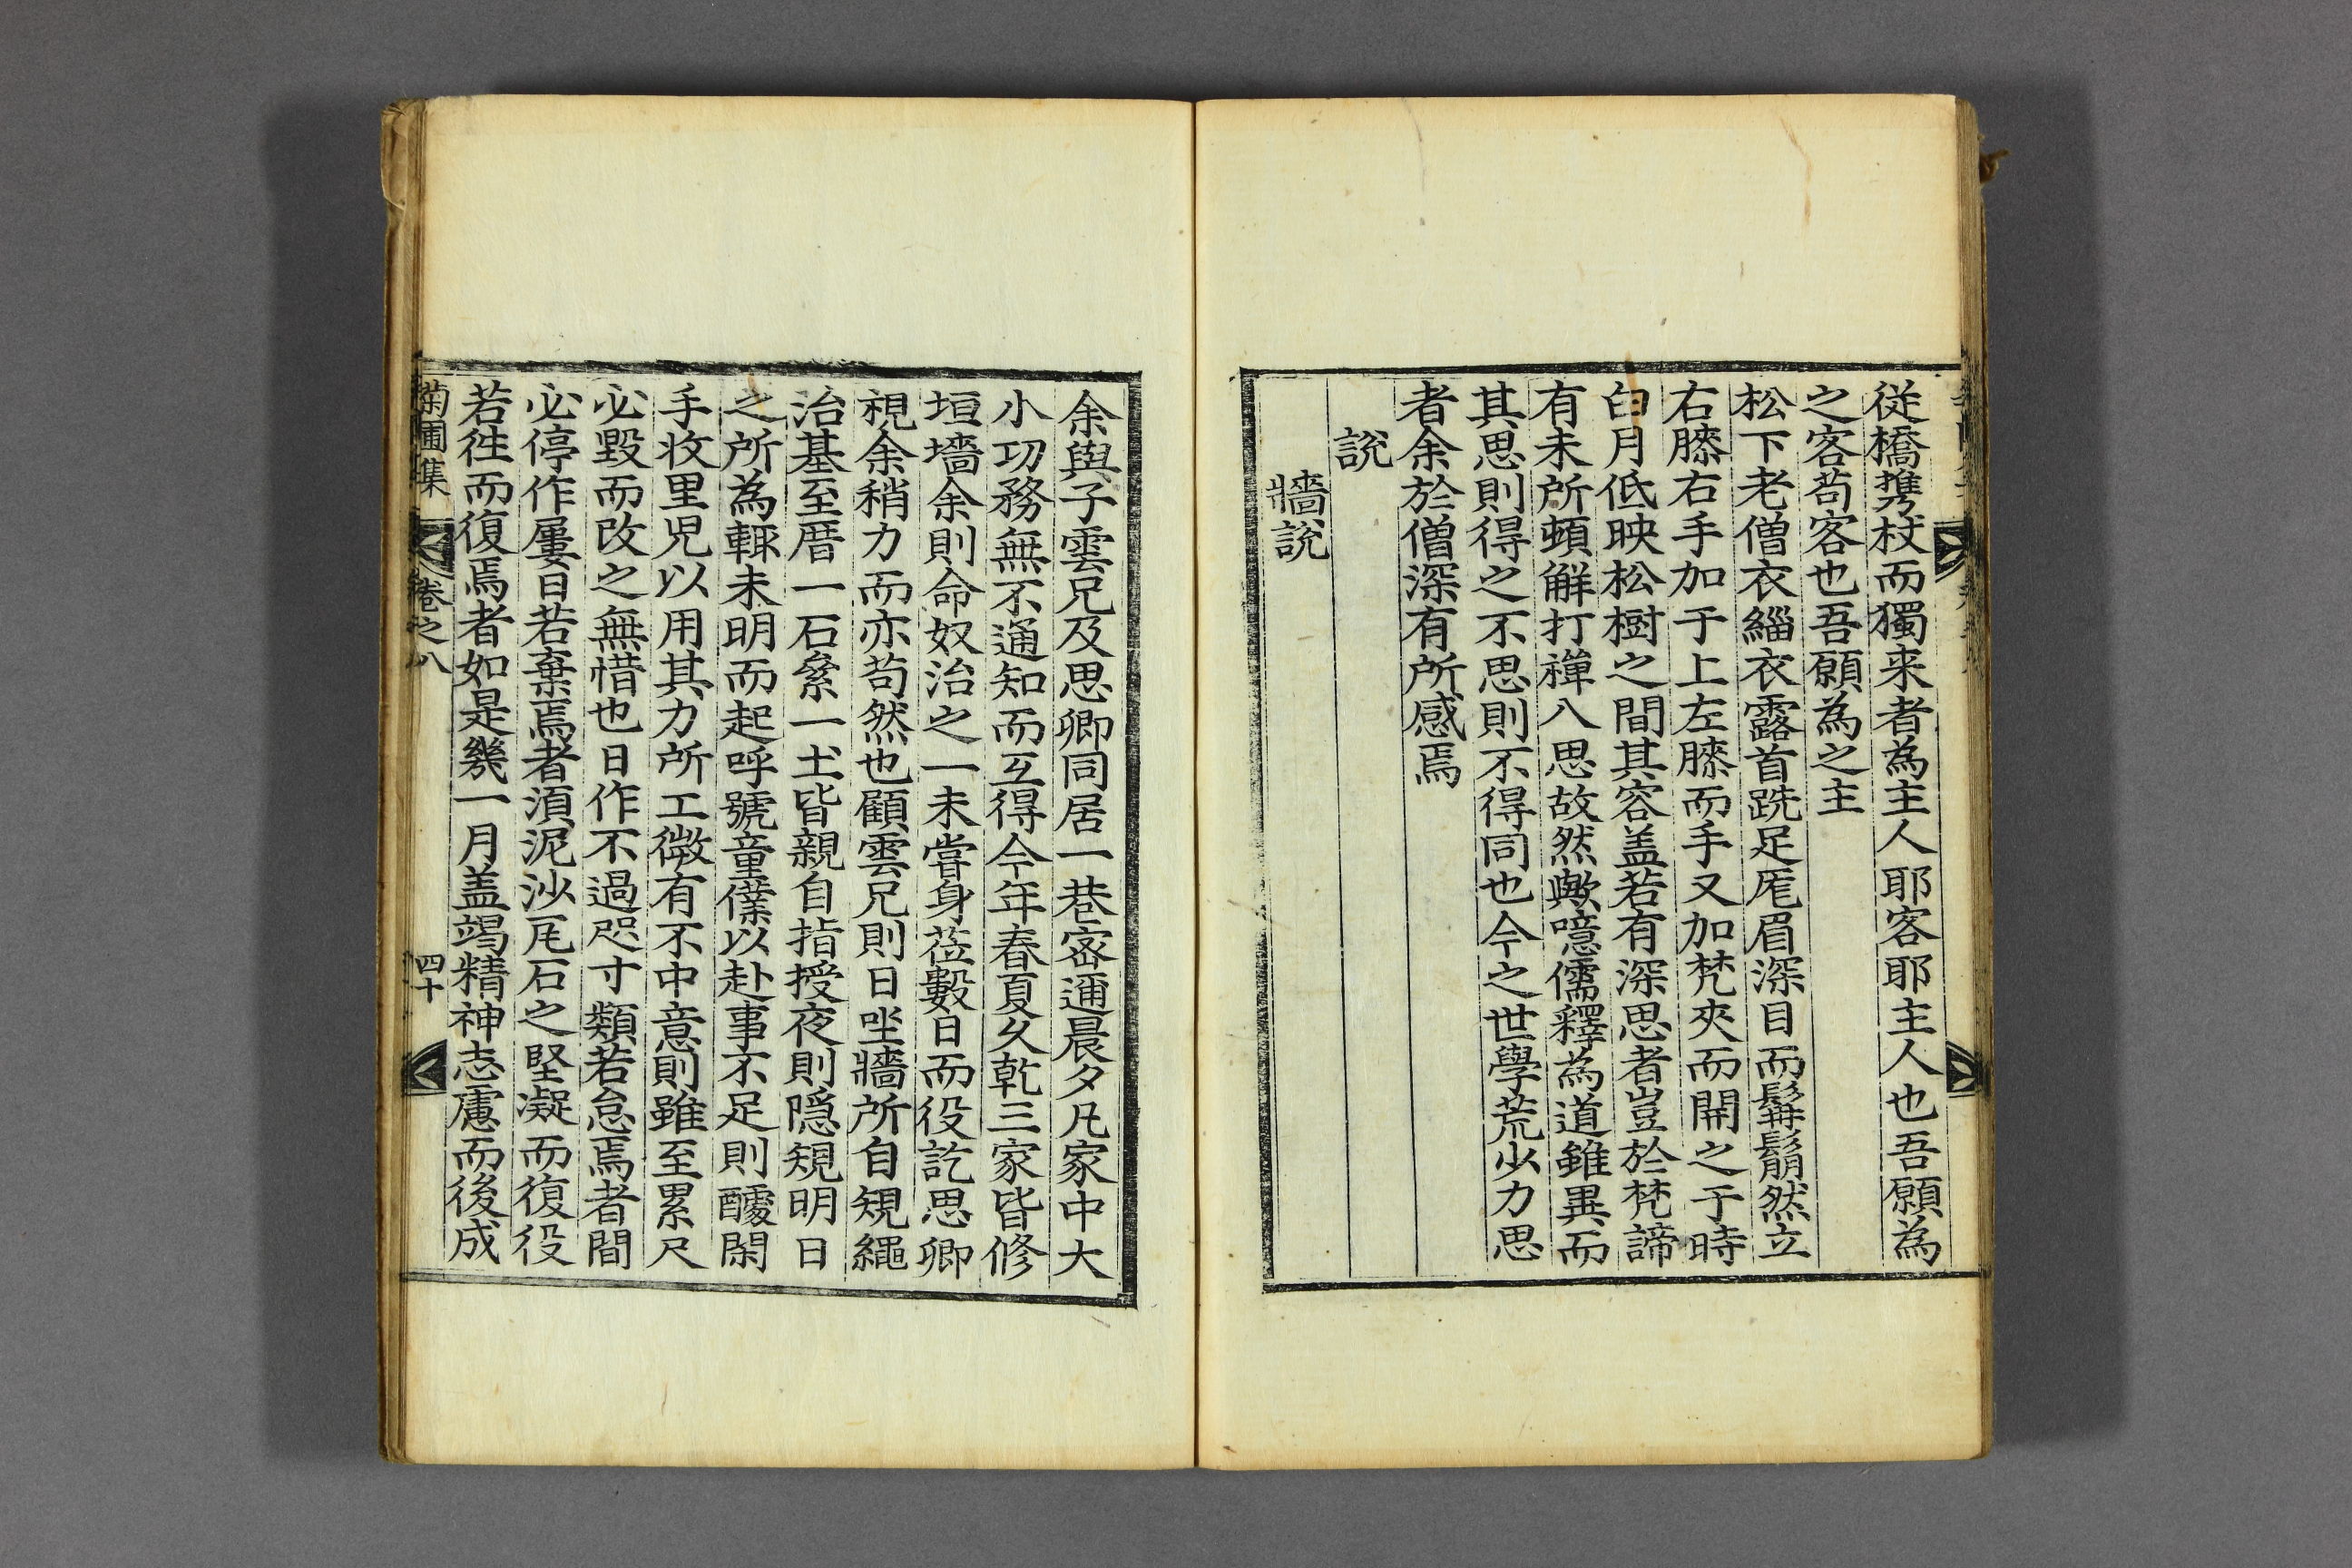 従橋携杖而獨来者為主人耶客耶主人也吾願為
之客苟客也吾願為之主
松下老僧衣緇衣露首跣足厖眉深目而髯鬅然立
右膝右手加于上左膝而手又加梵夾而開之于時
白月低映松樹之間其容盖若有深思者豈於梵諦
有未所頓觧打禪八思故然歟噫儒釋為道雖異而
其思則得之不思則不得同也今之世學荒少力思
者余於僧深有所感焉
說
牆說
余與子雲兄及思卿同居一巷密邇晨夕凡家中大
小功務無不通知而互得今年春夏久乾三家皆修
垣墻余則命奴治之一未嘗身莅數日而役訖思卿
視余稍力而亦苟然也顧雲兄則日坐牆所自規繩
治基至厝一石絫一土皆親自指授夜則隐規明日
之所為輙未明而起呼號童僕以赴事不足則醵閑
手收里児以用其力所工微有不中意則雖至累尺
必毀而改之無惜也日作不過咫寸類若怠焉者間
必停作屢日若棄焉者湏泥沙尾石之堅凝而復役
若徃而復焉者如是幾一月盖竭精神志慮而後成
菊圃集 卷之八 四十